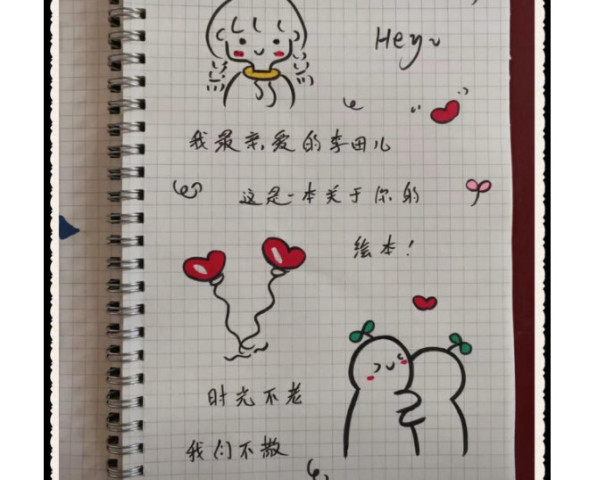 Hey~
我最亲爱的李田儿
这是一本关于你的
绘本!
时光不老
我们不散